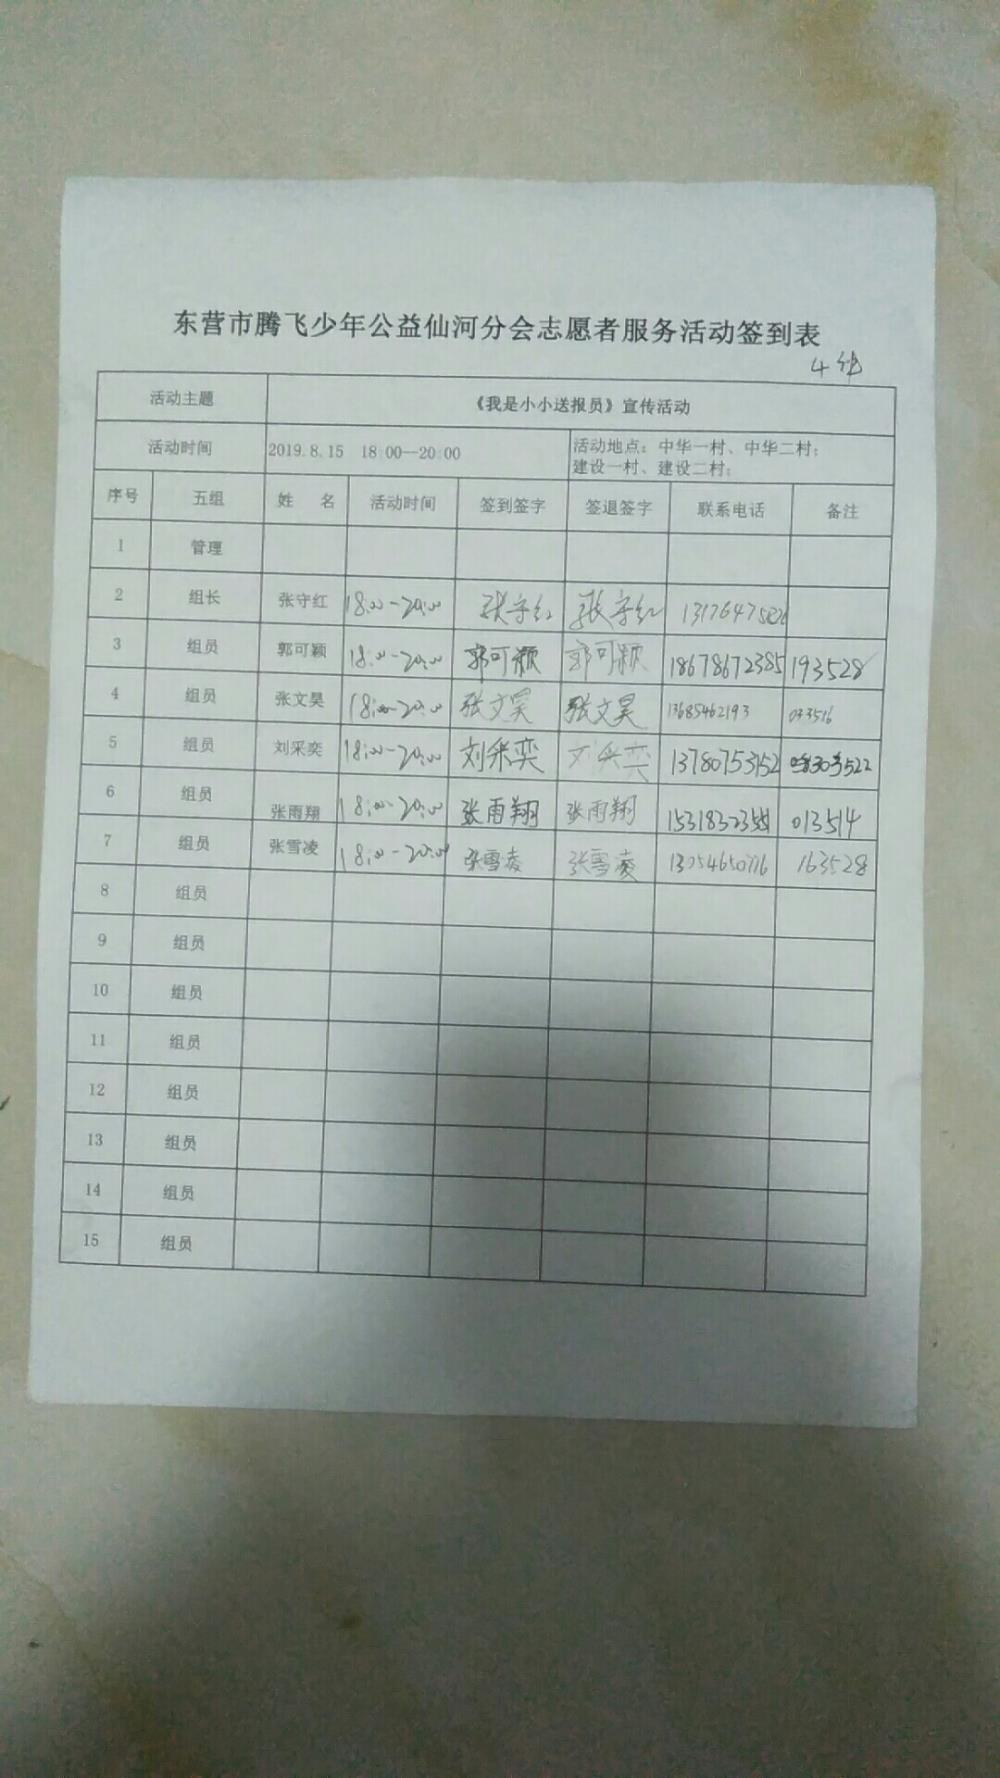 东营市腾飞少年公益仙河分会志愿者服务活动签到表
4
活动主题 《我是小小送报员》宣传活动
活动时间 2019.8.15 18:00—20:00 活动地点：中华一村、中华二村；
建设一村、建设二村；
序号 五组 姓 名 活动时间 签到签字 签退签字 联系电话 备注
1 管理
2 组长 张守红 18:00-20:00 张守红 张守红
3 组员 郭可颖 18:00-20:00 郭可颖 郭可颖 18678672385 193528
4 组员 张文昊 18:00-20:00 张文昊 张文昊 13685462193 033516
5 组员 刘采奕 18:00-20:00 刘采奕 刘采奕 13780753152
6 组员 张雨翔 18:00-20:00 张雨翔 张雨翔 013514
7 组员 张雪凌 18:00-20:00 张雪凌 张雪凌 163528
8 组员
9 组员
10 组员
11 组员
12 组员
13 组员
14 组员
15 组员